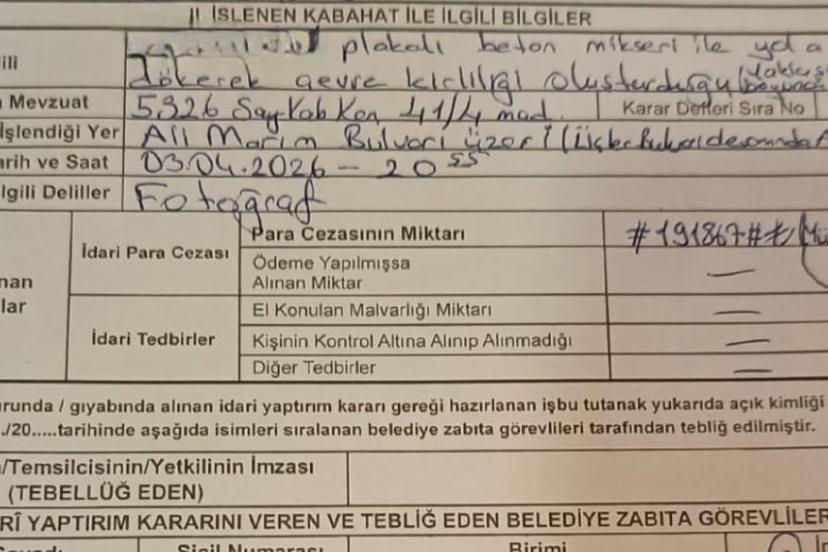 II İŞLENEN KABAHAT İLE İLGİLİ BİLGİLER
ili plakalı beton mikseri ile yola
dökerek çevre kirliliği oluşturduğu
Mevzuat 5326 Say Kab Kan 41/4 mad. Karar Defteri Sıra No
İşlendiği Yer Bulvarı üzeri
arih ve Saat 03.04.2026 - 20 55
lgili Deliller Fotoğraf
Para Cezasının Miktarı #191867#₺
İdari Para Cezası
Ödeme Yapılmışsa
Alınan Miktar —
nan
lar
El Konulan Malvarlığı Miktarı —
İdari Tedbirler Kişinin Kontrol Altına Alınıp Alınmadığı —
Diğer Tedbirler —
urunda / gıyabında alınan idari yaptırım kararı gereği hazırlanan işbu tutanak yukarıda açık kimliği
./20.....tarihinde aşağıda isimleri sıralanan belediye zabıta görevlileri tarafından tebliğ edilmiştir.
/Temsilcisinin/Yetkilinin İmzası
(TEBELLÜĞ EDEN)
RÎ YAPTIRIM KARARINI VEREN VE TEBLİĞ EDEN BELEDİYE ZABITA GÖREVLİLER
Sicil Numarası Birimi